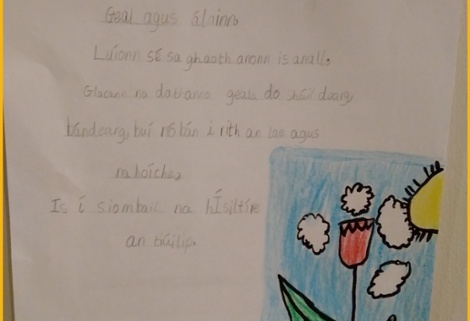 Geal agus álainn.
Luíonn sé sa ghaoth anonn is anall.
Glacann na dathanna geala do shúil dearg,
bándearg, buí nó bán i rith an lae agus
na hoíche,
Is í siombail na hÍsiltíre
an tiúilip.